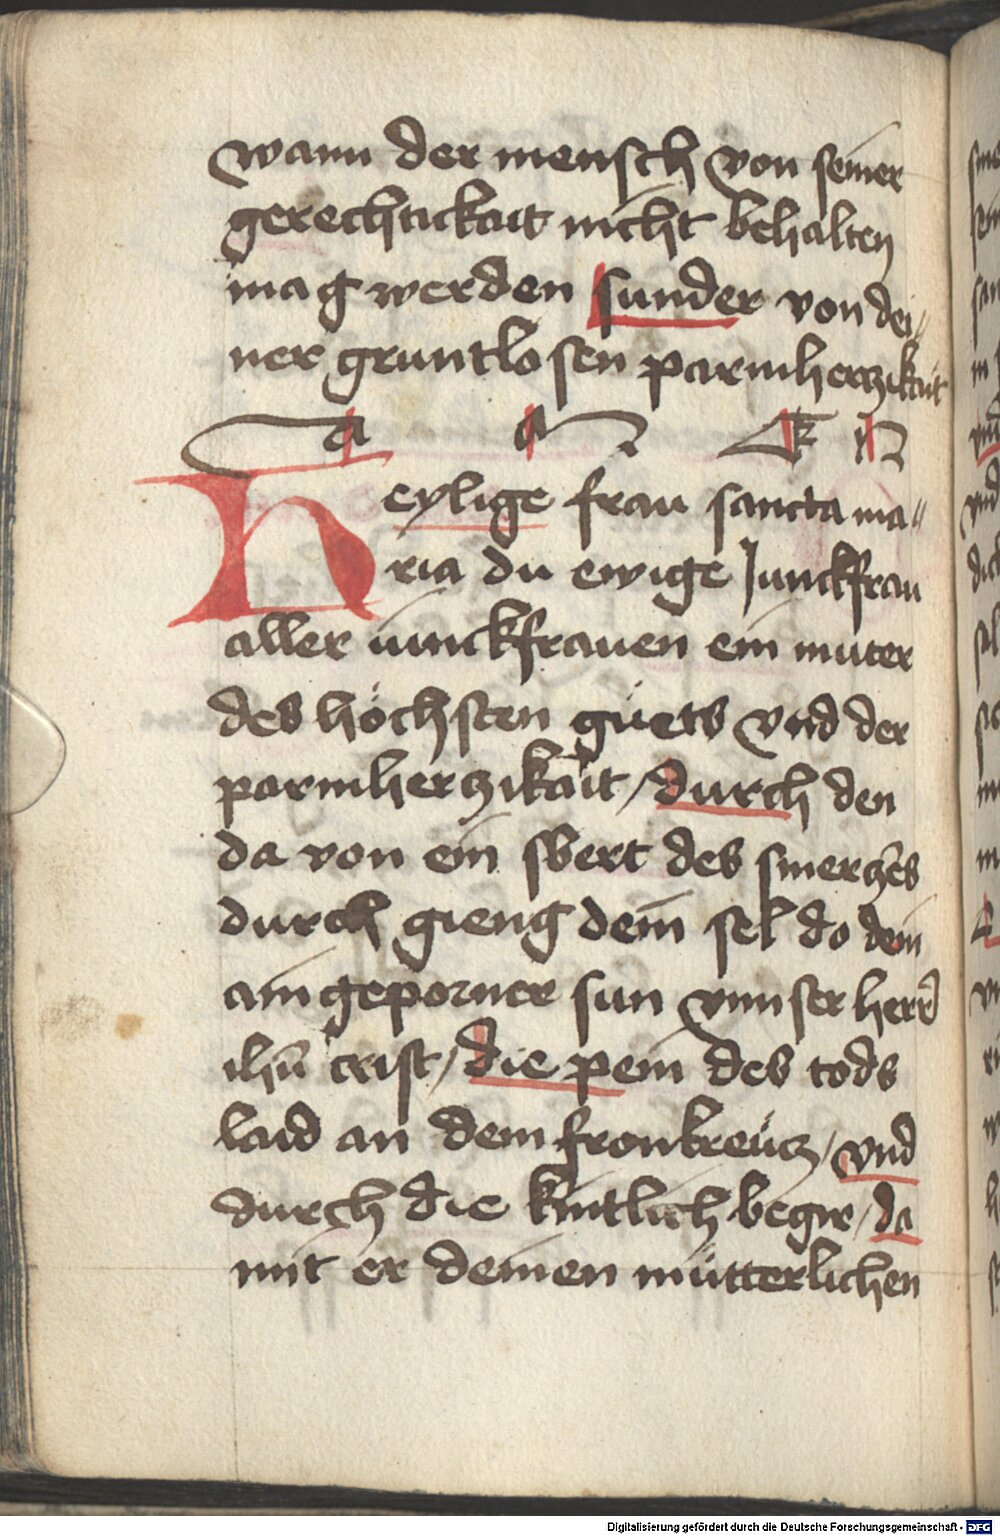 wann der mensch von seiner
gerechtickait nicht behalten
mag werden sunder von dei„
ner gruntlosen parmherczikait
a a
Heylige frau sancta ma„
ria du ewige Junckfrau
aller iunckfrauen ein muter
des höchsten guets vnd der
parmherczikait / durch den
da von ein swert des smerczēs
durch gieng dein sel do dein
aingeporner sun vnnser herr̄
ihū crist / die pein des tods
laid an dem fronkreücz / vnd
durch die kintlich begir / da
mit er deinen mütterlichen
Digitalisierung gefördert durch die Deutsche Forschungsgemeinschaft - DFG